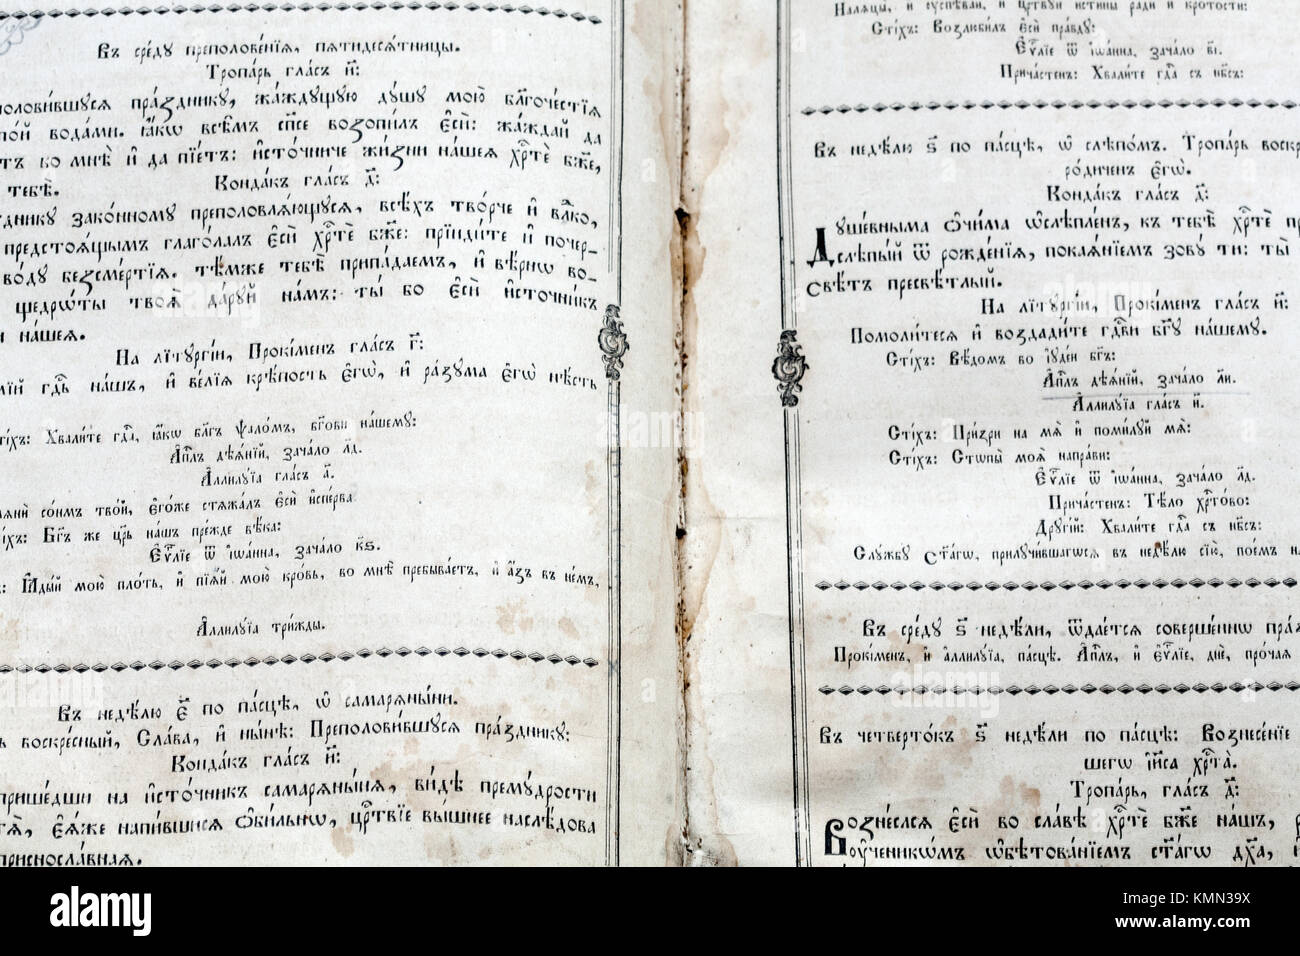 Въ сре́дꙋ преполове́нїѧ, пѧтидесѧ́тницы.
Тропа́рь гла́съ и҃:
половⷭ҇и́вшꙋсѧ пра́здникꙋ, жа́ждꙋщꙋю дꙋ́шꙋ мою̀ бл҃гоче́стїѧ
пой вода́ми. ꙗ҆́кѡ всѣ̑мъ сп҃се возопи́лъ є҆сѝ: жа́ждай да
етъ ко мнѣ̀ и҆ да пїе́тъ: и҆сто́чниче жи́зни на́шеѧ хрⷭ҇тѐ бж҃е,
тебѣ̀.
Конда́къ гла́съ д҃:
дникꙋ зако́нномꙋ преполовлѧ́ющꙋсѧ, всѣ́хъ тво́рче и҆ влⷣко,
предстоѧ́щымъ глаго́лалъ є҆сѝ хрⷭ҇тѐ бж҃е: прїиди́те и҆ поче́р-
во́дꙋ безсме́ртїѧ. тѣ́мже тебѣ̀ припа́даемъ, и҆ вѣ́рнѡ во-
щедрѡ́ты твоѧ̑ да́рꙋй на́мъ: ты́ бо є҆сѝ и҆сто́чникъ
и на́шеѧ.
На лїтꙋргі́и, Прокі́менъ гла́съ г҃:
лїй гдⷭ҇ь на́шъ, и҆ ве́лїѧ крѣ́пость є҆гѡ̀, и҆ ра́зꙋма є҆гѡ̀ нѣ́сть
Сті́хъ: Хвали́те гдⷭ҇а, ꙗ҆́кѡ бл҃гъ ѱало́мъ, бг҃ови на́шемꙋ:
А҆пⷭ҇лъ дѣѧ́нїй, зача́ло л҃д.
А҆ллилꙋ́їа гла́съ а҃.
со́нмъ тво́й, є҆го́же стѧжа́лъ є҆сѝ и҆спе́рва
Сті́хъ: Бг҃ъ же цр҃ь на́шъ пре́жде вѣ́ка:
Є҆ѵⷢ҇лїе ѿ і҆ѡа́нна, зача́ло к҃ѕ.
Ꙗ҆ды́й мою̀ пло́ть, и҆ пїѧ́й мою̀ кро́вь, во мнѣ̀ пребыва́етъ, и҆ а҆́зъ въ не́мъ,
А҆ллилꙋ́їа три́жды.
Въ недѣ́лю є҃ по па́сцѣ, ѡ҆ самарѧны́ни.
воскре́сный, Сла́ва, и҆ ны́нѣ: Преполови́вшꙋсѧ пра́здникꙋ:
Конда́къ гла́съ и҃:
прише́дши на и҆сто́чникъ самарѧны́нѧ, ви́дѣ премꙋ́дрости
тѧ̀, є҆ѧ́же напи́вшисѧ ѻ҆би́льнѡ, црⷭ҇твїе вы́шнее наслѣ́дова
приснослáвнаѧ.
Налѧцы̀, и҆ ᲂу҆спѣва́й, и҆ црⷭ҇твꙋй и҆́стины ра́ди и҆ кро́тости:
Сті́хъ: Возлюби́лъ є҆сѝ пра́вдꙋ:
Є҆ѵⷢ҇лїе ѿ і҆ѡа́нна, зача́ло в҃і.
Прича́стенъ: Хвали́те гдⷭ҇а съ нб҃съ:
Въ недѣ́лю ѕ҃ по па́сцѣ, ѡ҆ слѣпо́мъ. Тропа́рь воскр
ро́диченъ є҆гѡ̀.
Конда́къ гла́съ д҃:
Дꙋше́вныма ѻ҆чи́ма ѡ҆слѣпле́нъ, къ тебѣ̀ хрⷭ҇тѐ пр
слѣпы́й ѿ рожде́нїѧ, покаѧ́нїемъ зовꙋ́ ти: ты̀
свѣ́тъ пресвѣ́тлый.
На лїтꙋргі́и, Прокі́менъ гла́съ и҃:
Помоли́тесѧ и҆ воздади́те гдⷭ҇ви бг҃ꙋ на́шемꙋ.
Сті́хъ: Вѣ́домъ во і҆ꙋде́и бг҃ъ:
А҆пⷭ҇лъ дѣѧ́нїй, зача́ло л҃и.
А҆ллилꙋ́їа гла́съ и҃.
Сті́хъ: При́зри на мѧ̀ и҆ поми́лꙋй мѧ̀:
Сті́хъ: Стѡпы̀ моѧ̑ напра́ви:
Є҆ѵⷢ҇лїе ѿ і҆ѡа́нна, зача́ло л҃д.
Прича́стенъ: Тѣ́ло хрⷭ҇то́во:
Дрꙋгі́й: Хвали́те гдⷭ҇а съ нб҃съ:
Слꙋ́жбꙋ ст҃а́гѡ, прилꙋчи́вшагѡсѧ въ недѣ́лю сїю̀, пое́мъ н
Въ сре́дꙋ ѕ҃ недѣ́ли, ѿдае́тсѧ соверше́ннѡ пра
Прокі́менъ, и҆ а҆ллилꙋ́їа, па́сцѣ. А҆пⷭ҇лъ, и҆ є҆ѵⷢ҇лїе, днѐ, про́чаѧ
Въ четверто́къ ѕ҃ недѣ́ли по па́сцѣ: Вознесе́нїе
шегѡ і҆и҃са хрⷭ҇та̀.
Тропа́рь, гла́съ д҃:
Возне́слсѧ є҆сѝ во сла́вѣ хрⷭ҇тѐ бж҃е на́шъ, р
ᲂу҆ченикѡ́мъ ѡ҆бѣтова́нїемъ ст҃а́гѡ дх҃а, и
alamy
Image ID: KMN39X
www.alamy.com